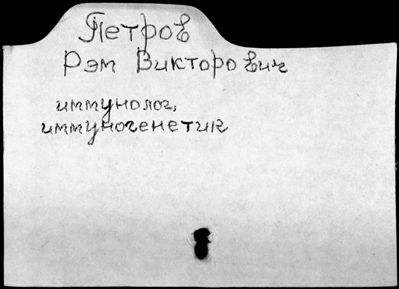 Петров
Рэм Викторович
иммунолог,
иммуногенетик